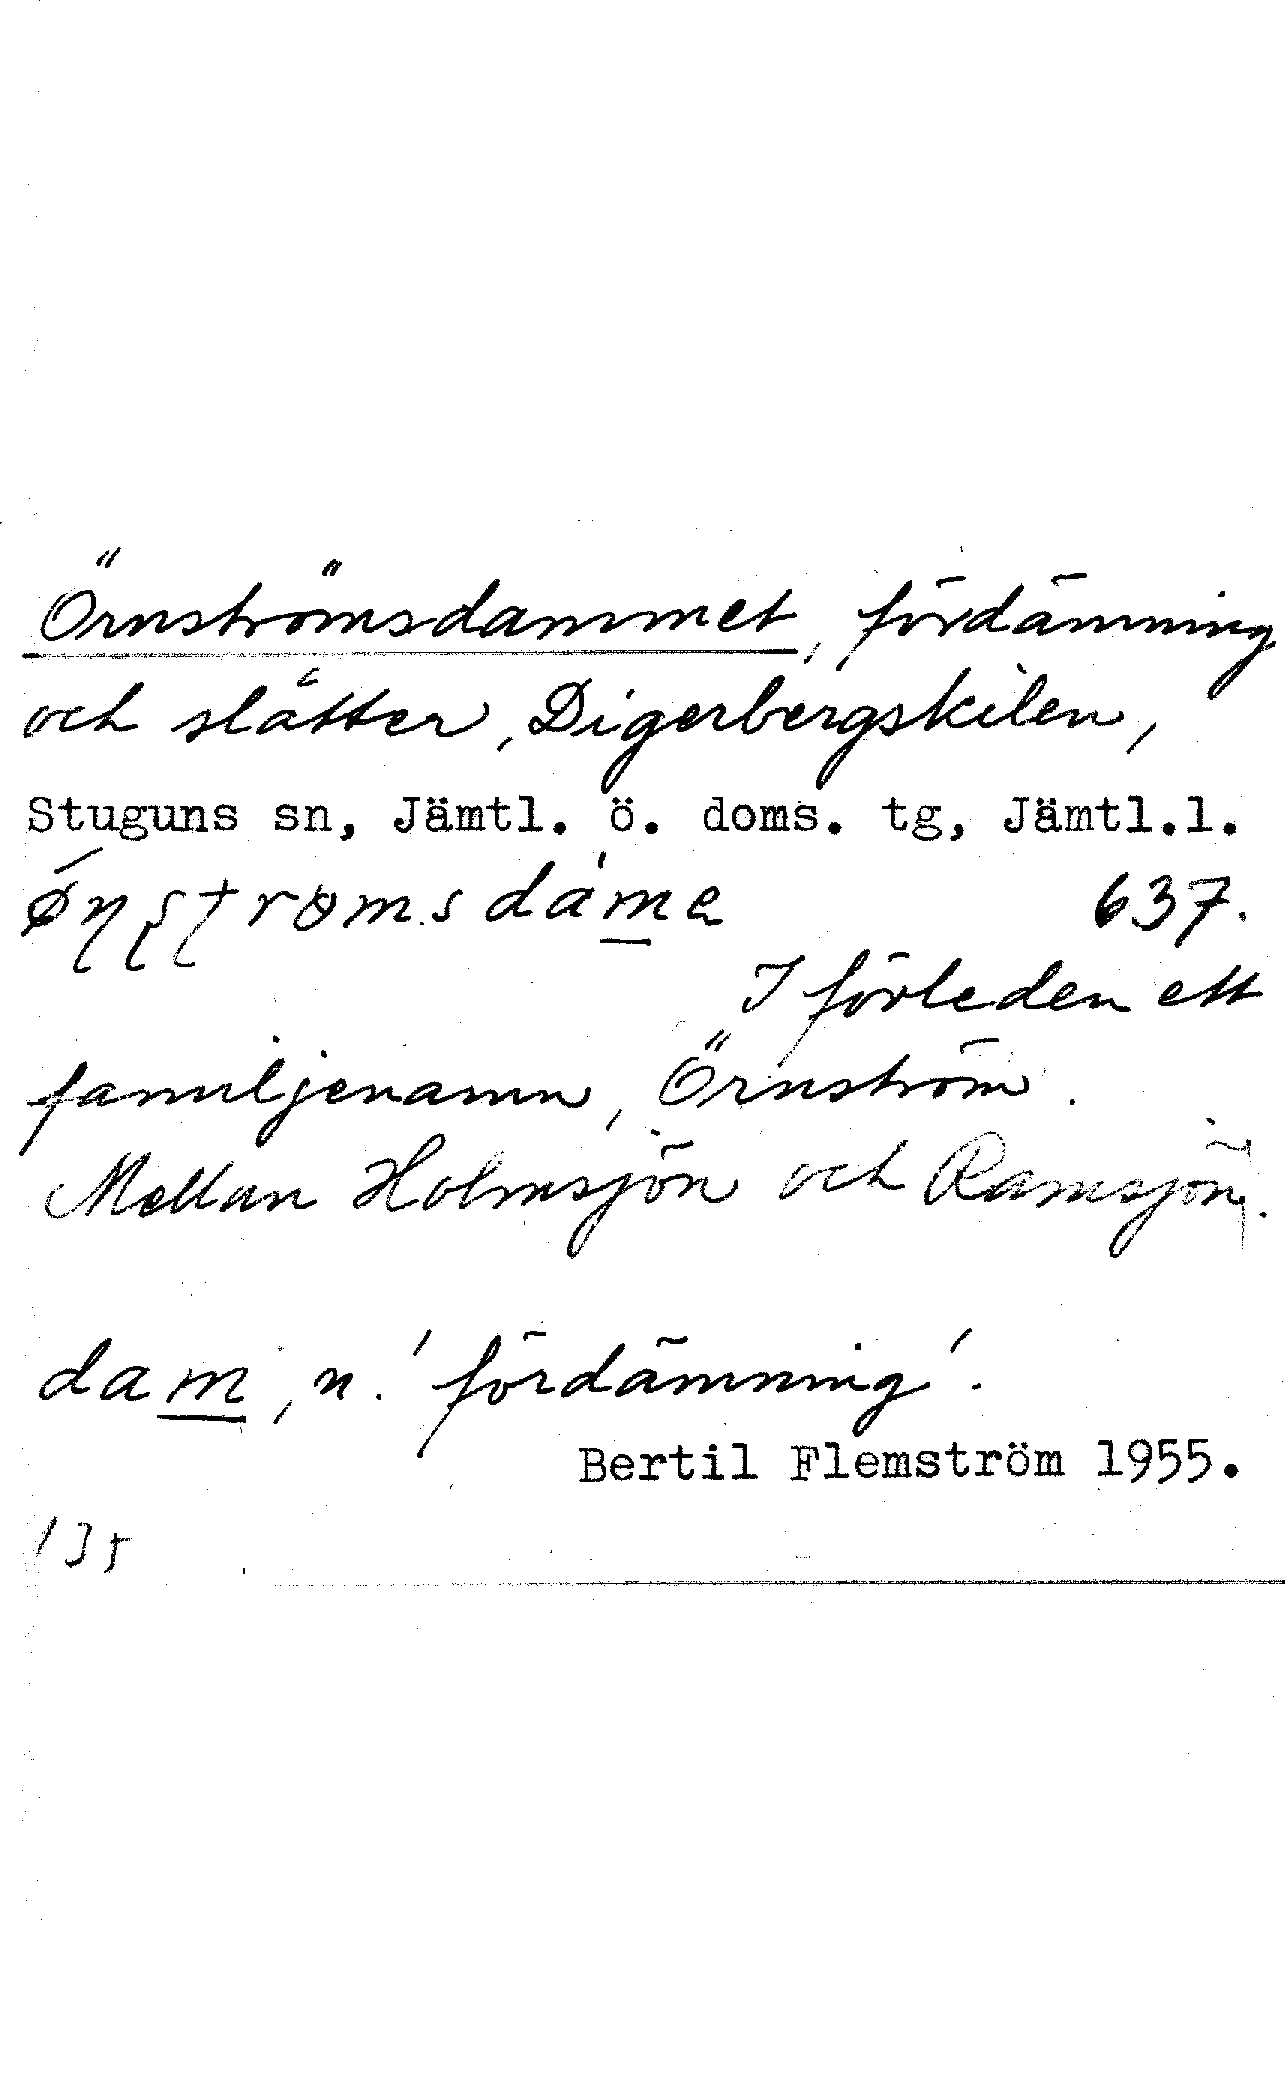 Örnströmsdammet, fördämning
och slåtter, Digerbergskilen,
Stuguns sn, Jämtl. ö. doms. tg, Jämtl.l.
637.
I förleden ett
familjenamn, Örnström.
Mellan Holmsjön och Ramsjön.
dam, n. 'fördämning'.
Bertil Flemström 1955.